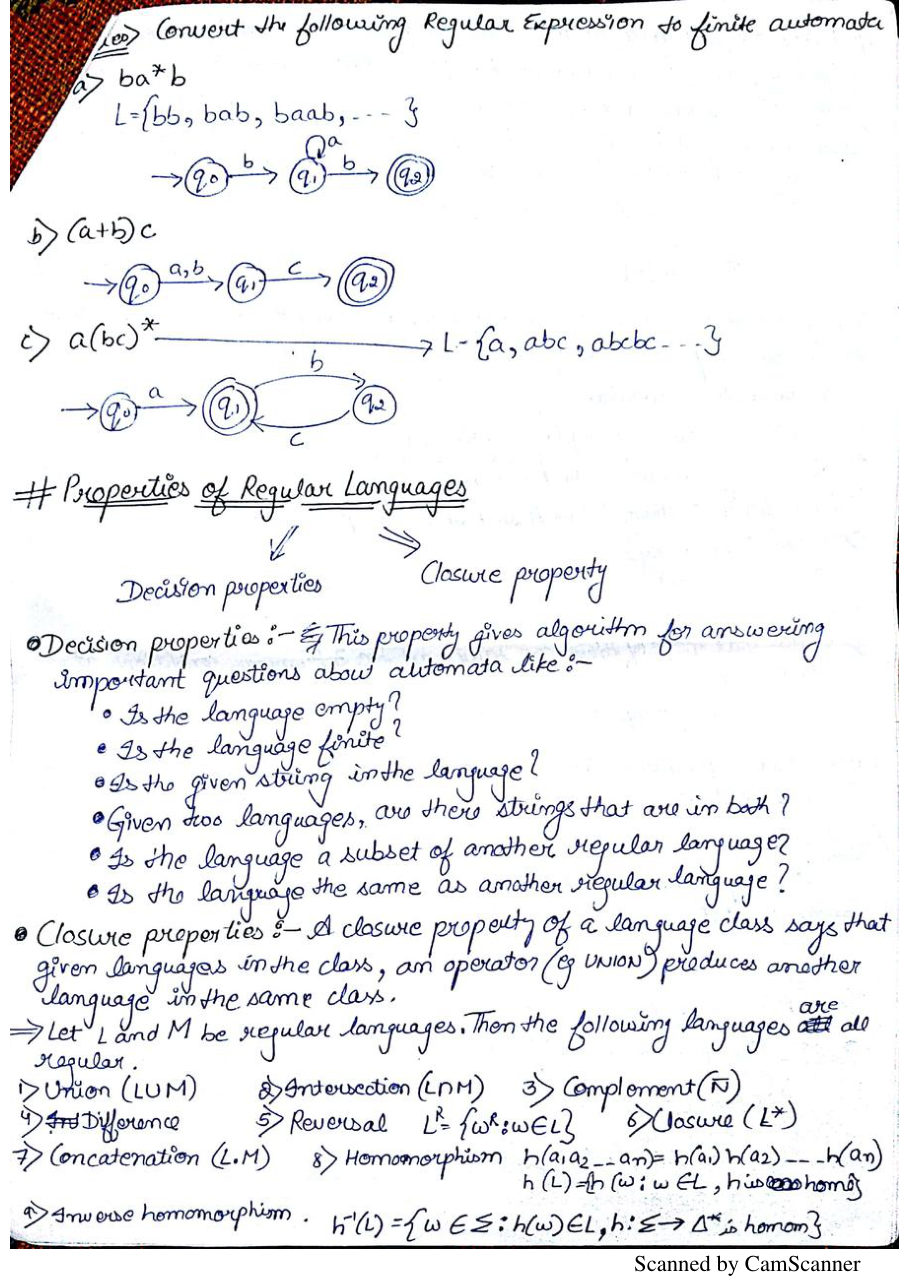 Convert the following Regular Expression to finite automata
a> ba*b
L={bb, bab, baab, --- }
q0 b q1 a b q2
b> (a+b)c
q0 a,b q1 c q2
c> a(bc)* → L-{a, abc, abcbc ---}
q0 a q1 b q2 c
# Properties of Regular Languages
Decision properties Closure property
Decision properties :- This property gives algorithm for answering
important questions about automata like :-
• Is the language empty?
• Is the language finite?
• Is the given string in the language?
• Given two languages, are there strings that are in both?
• Is the language a subset of another regular language?
• Is the language the same as another regular language?
• Closure properties :- A closure property of a language class says that
given languages in the class, an operator (eg UNION) produces another
language in the same class.
⇒ Let L and M be regular languages. Then the following languages are all
regular.
1> Union (LUM) 2> Intersection (L∩M) 3> Complement (N̅)
4> Difference 5> Reversal L^R = {w^R : w∈L} 6> Closure (L*)
7> Concatenation (L.M) 8> Homomorphism h(a1a2 -- an)= h(a1) h(a2) --- h(an)
h(L)={h(w : w ∈L, h is homo}
9> Inverse homomorphism. h⁻¹(L) = {w ∈ Σ : h(w) ∈ L, h: Σ → Δ* is homom}
Scanned by CamScanner